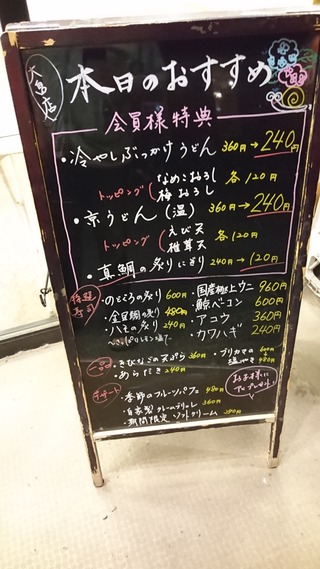 本日のおすすめ
会員様特典
・冷やしぶっかけうどん 360円→240円
トッピング(なめこおろし 梅おろし 各120円
・京うどん(温) 360円→240円
トッピング(えび天 椎茸天 各120円
・真鯛の炙りにぎり 240円→120円
・のどぐろの炙り 600円
・国産極上ウニ 960円
・金目鯛の炙り 480円
・鯨ベーコン 600円
・ハモの炙り 240円
・アコウ 360円
・カワハギ 240円
一品
・きびなごの天ぷら 360円
・ブリカマの塩やき 600円 480円
・あらだき 240円
デザート
・季節のフルーツパフェ 480円
・自家製クレームブリュレ 360円
・期間限定ソフトクリーム
お子様に
プレゼント!